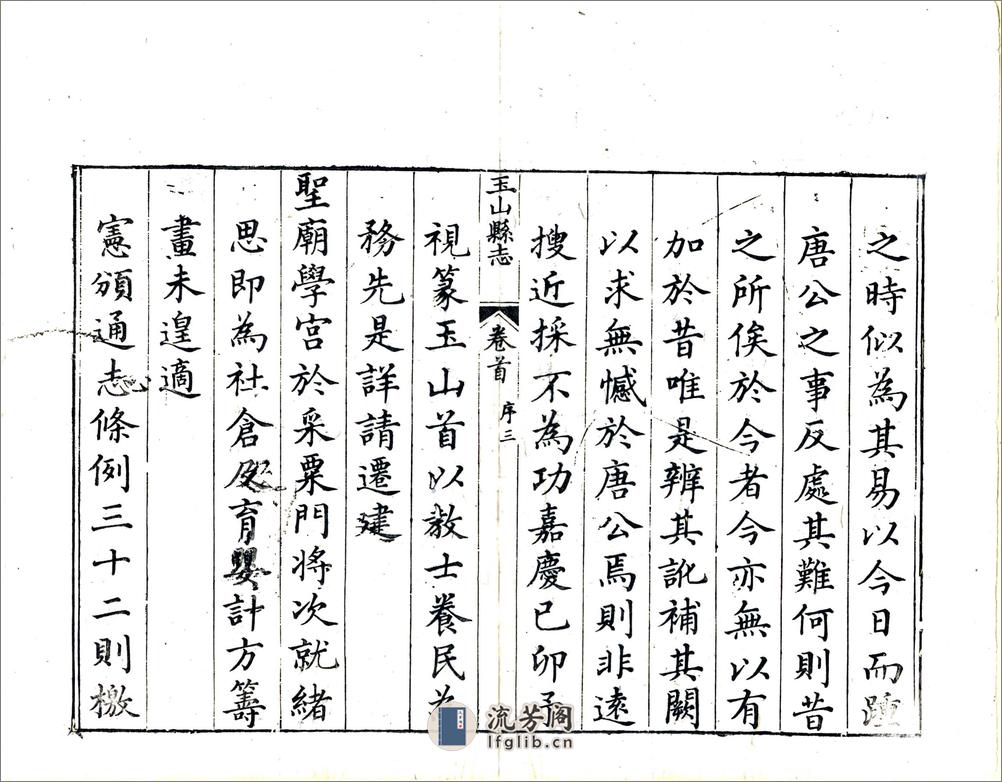 之時似為其易以今日而踵
唐公之事反處其難何則昔
之所俟於今者今亦無以有
加於昔唯是辨其訛補其闕
以求無憾於唐公焉則非遠
搜近採不為功嘉慶己卯予
玉山縣志
卷首
序三
視篆玉山首以教士養民為
務先是詳請遷建
聖廟學宮於采粟門將次就緒
思即為社倉及育嬰計方籌
畫未遑適
憲頒通志條例三十二則檄
流芳阁
lfglib.cn